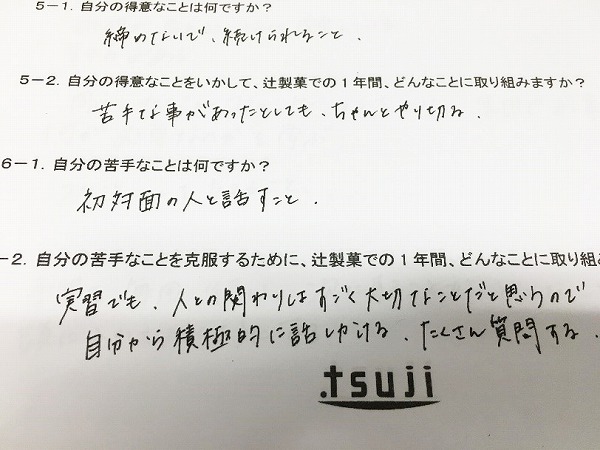 5－1. 自分の得意なことは何ですか？
締めないで、続けられること.
5－2. 自分の得意なことをいかして、辻製菓での１年間、どんなことに取り組みますか？
苦手な事があったとしても、ちゃんとやり切る.
6－1. 自分の苦手なことは何ですか？
初対面の人と話すこと.
－2. 自分の苦手なことを克服するために、辻製菓での１年間、どんなことに取り組み
実習でも、人との関わりはすごく大切なことだと思うので
自分から積極的に話しかける、たくさん質問する.
.tsuji